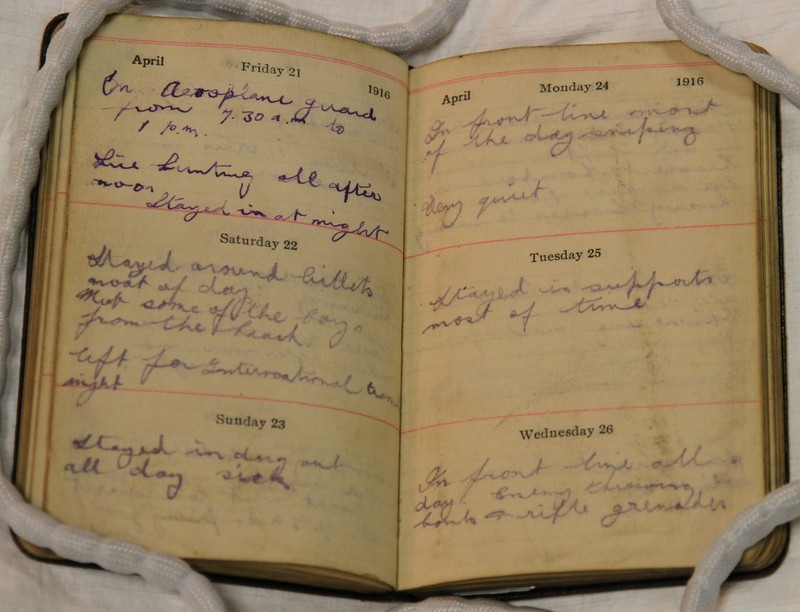 April Friday 21 1916
On Aeroplane guard
from 7.30 a.m to
1 p.m.
Lice hunting all after
noon
Stayed in at night
Saturday 22
Stayed around billets
most of day.
Met some of the boys
from the
left for International
night
Sunday 23
Stayed in dug out
all day sick
April Monday 24 1916
In front line most
of the day sniping
Very quiet
Tuesday 25
Stayed in supports
most of time
Wednesday 26
In front line all
day. Enemy throwing
bombs & rifle grenades